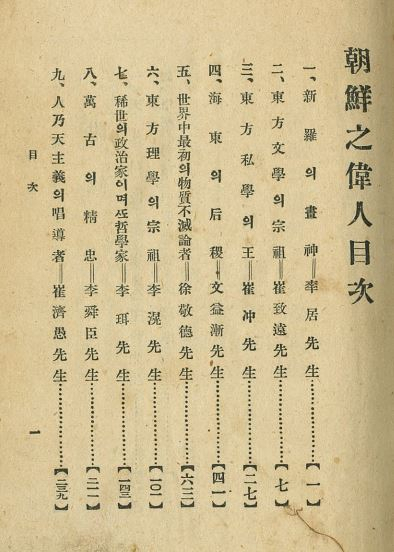 朝鮮之偉人目次
一、新羅의畫神＝率居先生………【一】
二、東方文學의宗祖＝崔致遠先生………【七】
三、東方私學의王＝崔冲先生………【二七】
四、海東의后稷＝文益漸先生………【四一】
五、世界中最初의物質不滅論者＝徐敬德先生………【六三】
六、東方理學의宗祖＝李滉先生………【一〇一】
七、稀世의政治家이며또哲學家＝李珥先生………【一四三】
八、萬古의精忠＝李舜臣先生………【二一一】
九、人乃天主義의唱導者＝崔濟愚先生………【二三九】
目次
一